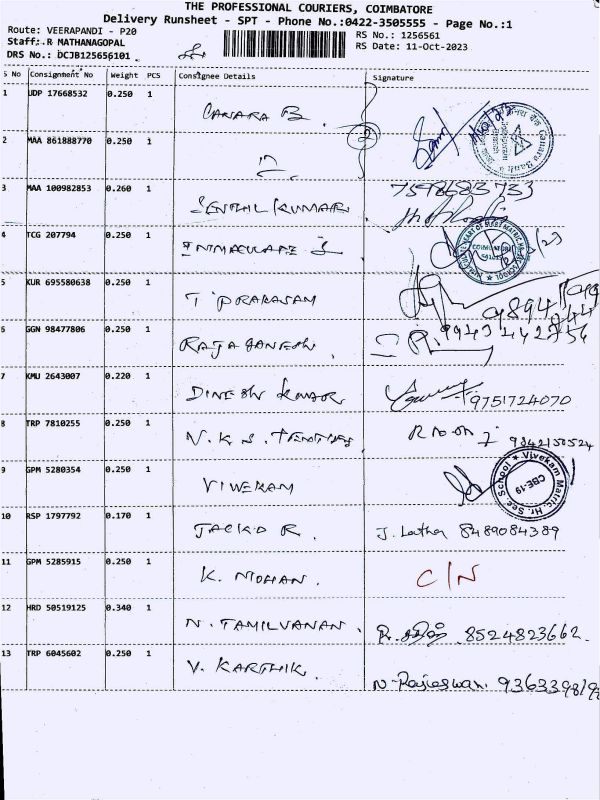 THE PROFESSIONAL COURIERS, COIMBATORE
Delivery Runsheet - SPT - Phone No.:0422-3505555 - Page No.:1
Route: VEERAPANDI - P20
Staff: R MATHANAGOPAL
DRS No.: DCJB125656101
RS No.: 1256561
RS Date: 11-Oct-2023
S No Consignment No Weight PCS Consignee Details Signature
1 UDP 17668532 0.250 1 CANARA B.
2 MAA 861888770 0.250 1
Canara Bank
3 MAA 100982853 0.260 1 SENTHIL KUMAR 7598683733
4 TCG 207794 0.250 1 INMACULATE
5 KUR 695580638 0.250 1 T PRAKASAM
6 GGN 98477806 0.250 1 RAJA GANESH. 9943442756
7 KMU 2643007 0.220 1 DINESH KUMAR 9751724070
8 TRP 7810255 0.250 1 N.K.S. 9842150524
9 GPM 5280354 0.250 1 VIVEKAM
Vivekam Matric Hr. Sec. School
CBE-19
10 RSP 1797792 0.170 1 J. Latha 8489084389
11 GPM 5285915 0.250 1 K. MOHAN. C/N
12 HRD 50519125 0.340 1 N. TAMILVANAN. 8524823662.
13 TRP 6045602 0.250 1 V. KARTHIK. N. Rajeswari.